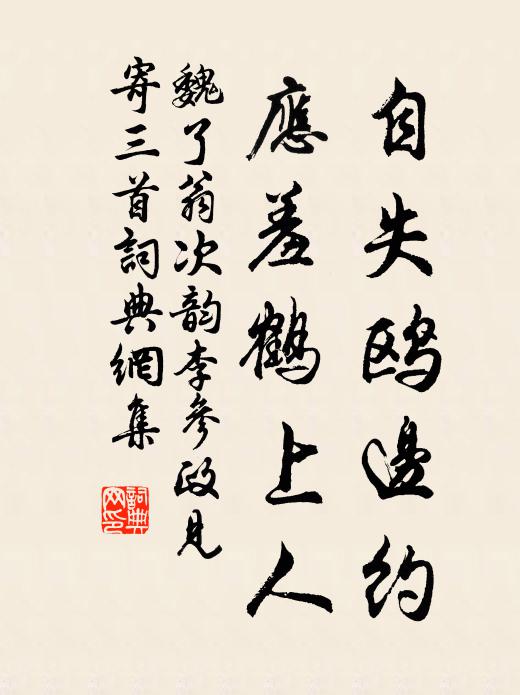 自失鸥邊约
應羞鶴上人
魏了翁次韵李參政見
寄三首詞典網集
詞典网印